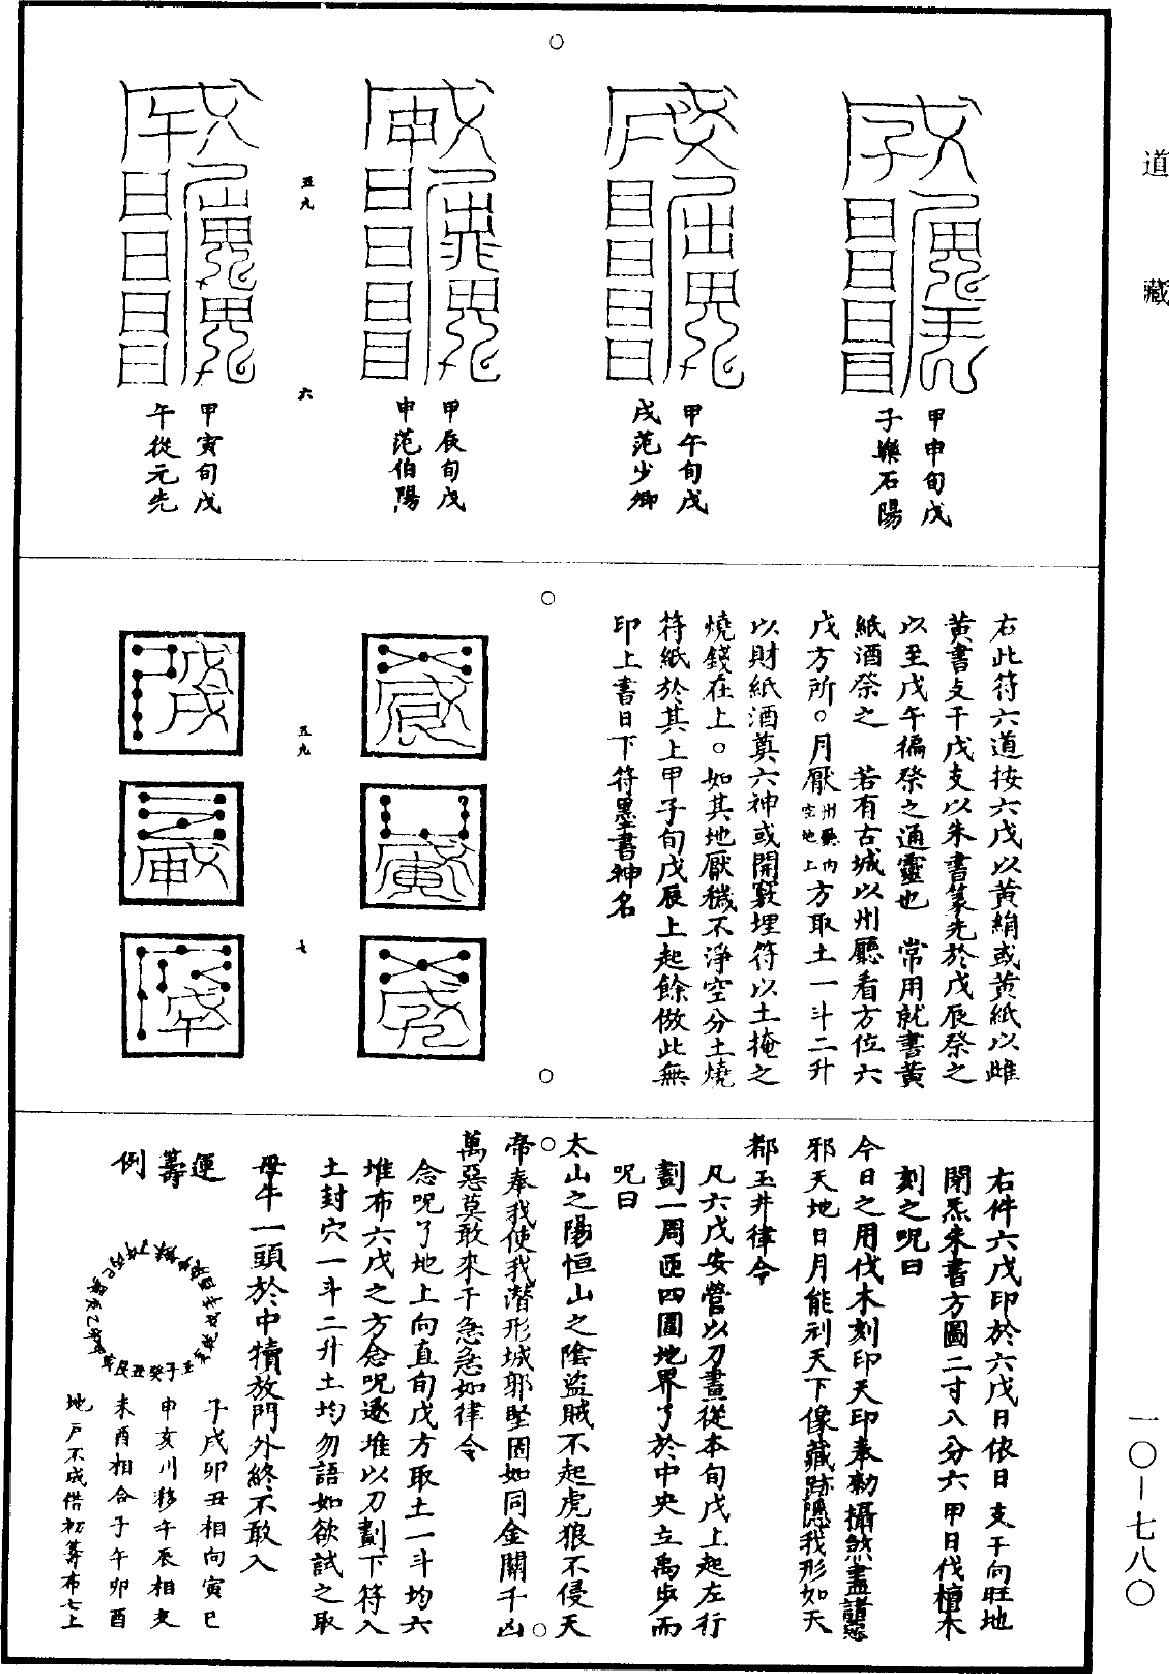 道藏
甲申旬戊
子樂石陽
甲午旬戊
戌范少卿
甲辰旬戊
申范伯陽
五九
六
甲寅旬戊
午從元先
右此符六道按六戊以黄絹或黄紙以雌
黄書支干戊支以朱書篆先於戊辰祭之
以至戊午徧祭之通靈也 常用就書黄
紙酒祭之 若有古城以州廳看方位六
戊方所○月厭州縣内空地上方取土一斗二升
以財紙酒奠六神或開竅埋符以土掩之
燒錢在上○如其地厭穢不淨空分土燒
符紙於其上甲子旬戊辰上起餘倣此無
印上書日下符墨書神名
五九
七
右件六戊印於六戊日依日支干向旺地
閉炁朱書方圖二寸八分六甲日伐檀木
刻之呪曰
今日之用伐木刻印天印奉勑攝煞盡諸惡
邪天地日月能刹天下像藏跡隱我形如天
都玉井律令
凡六戊安營以刀畫從本旬戊上起左行
劃一周匝四圍地界了於中央立禹步而
呪曰
太山之陽恒山之陰盜賊不起虎狼不侵天
帝奉我使我潛形城郭堅固如同金關千凶
萬惡莫敢來干急急如律令
念呪了地上向直旬戊方取土一斗均六
堆布六戊之方念呪逐堆以刀劃下符入
土封穴一斗二升土均勿語如欲試之取
母牛一頭於中犢放門外終不敢入
運籌例
子戌卯丑相向寅巳
申亥川移午辰相交
未酉相合子午卯酉
地戶不成借初籌布七上
一〇—七八〇